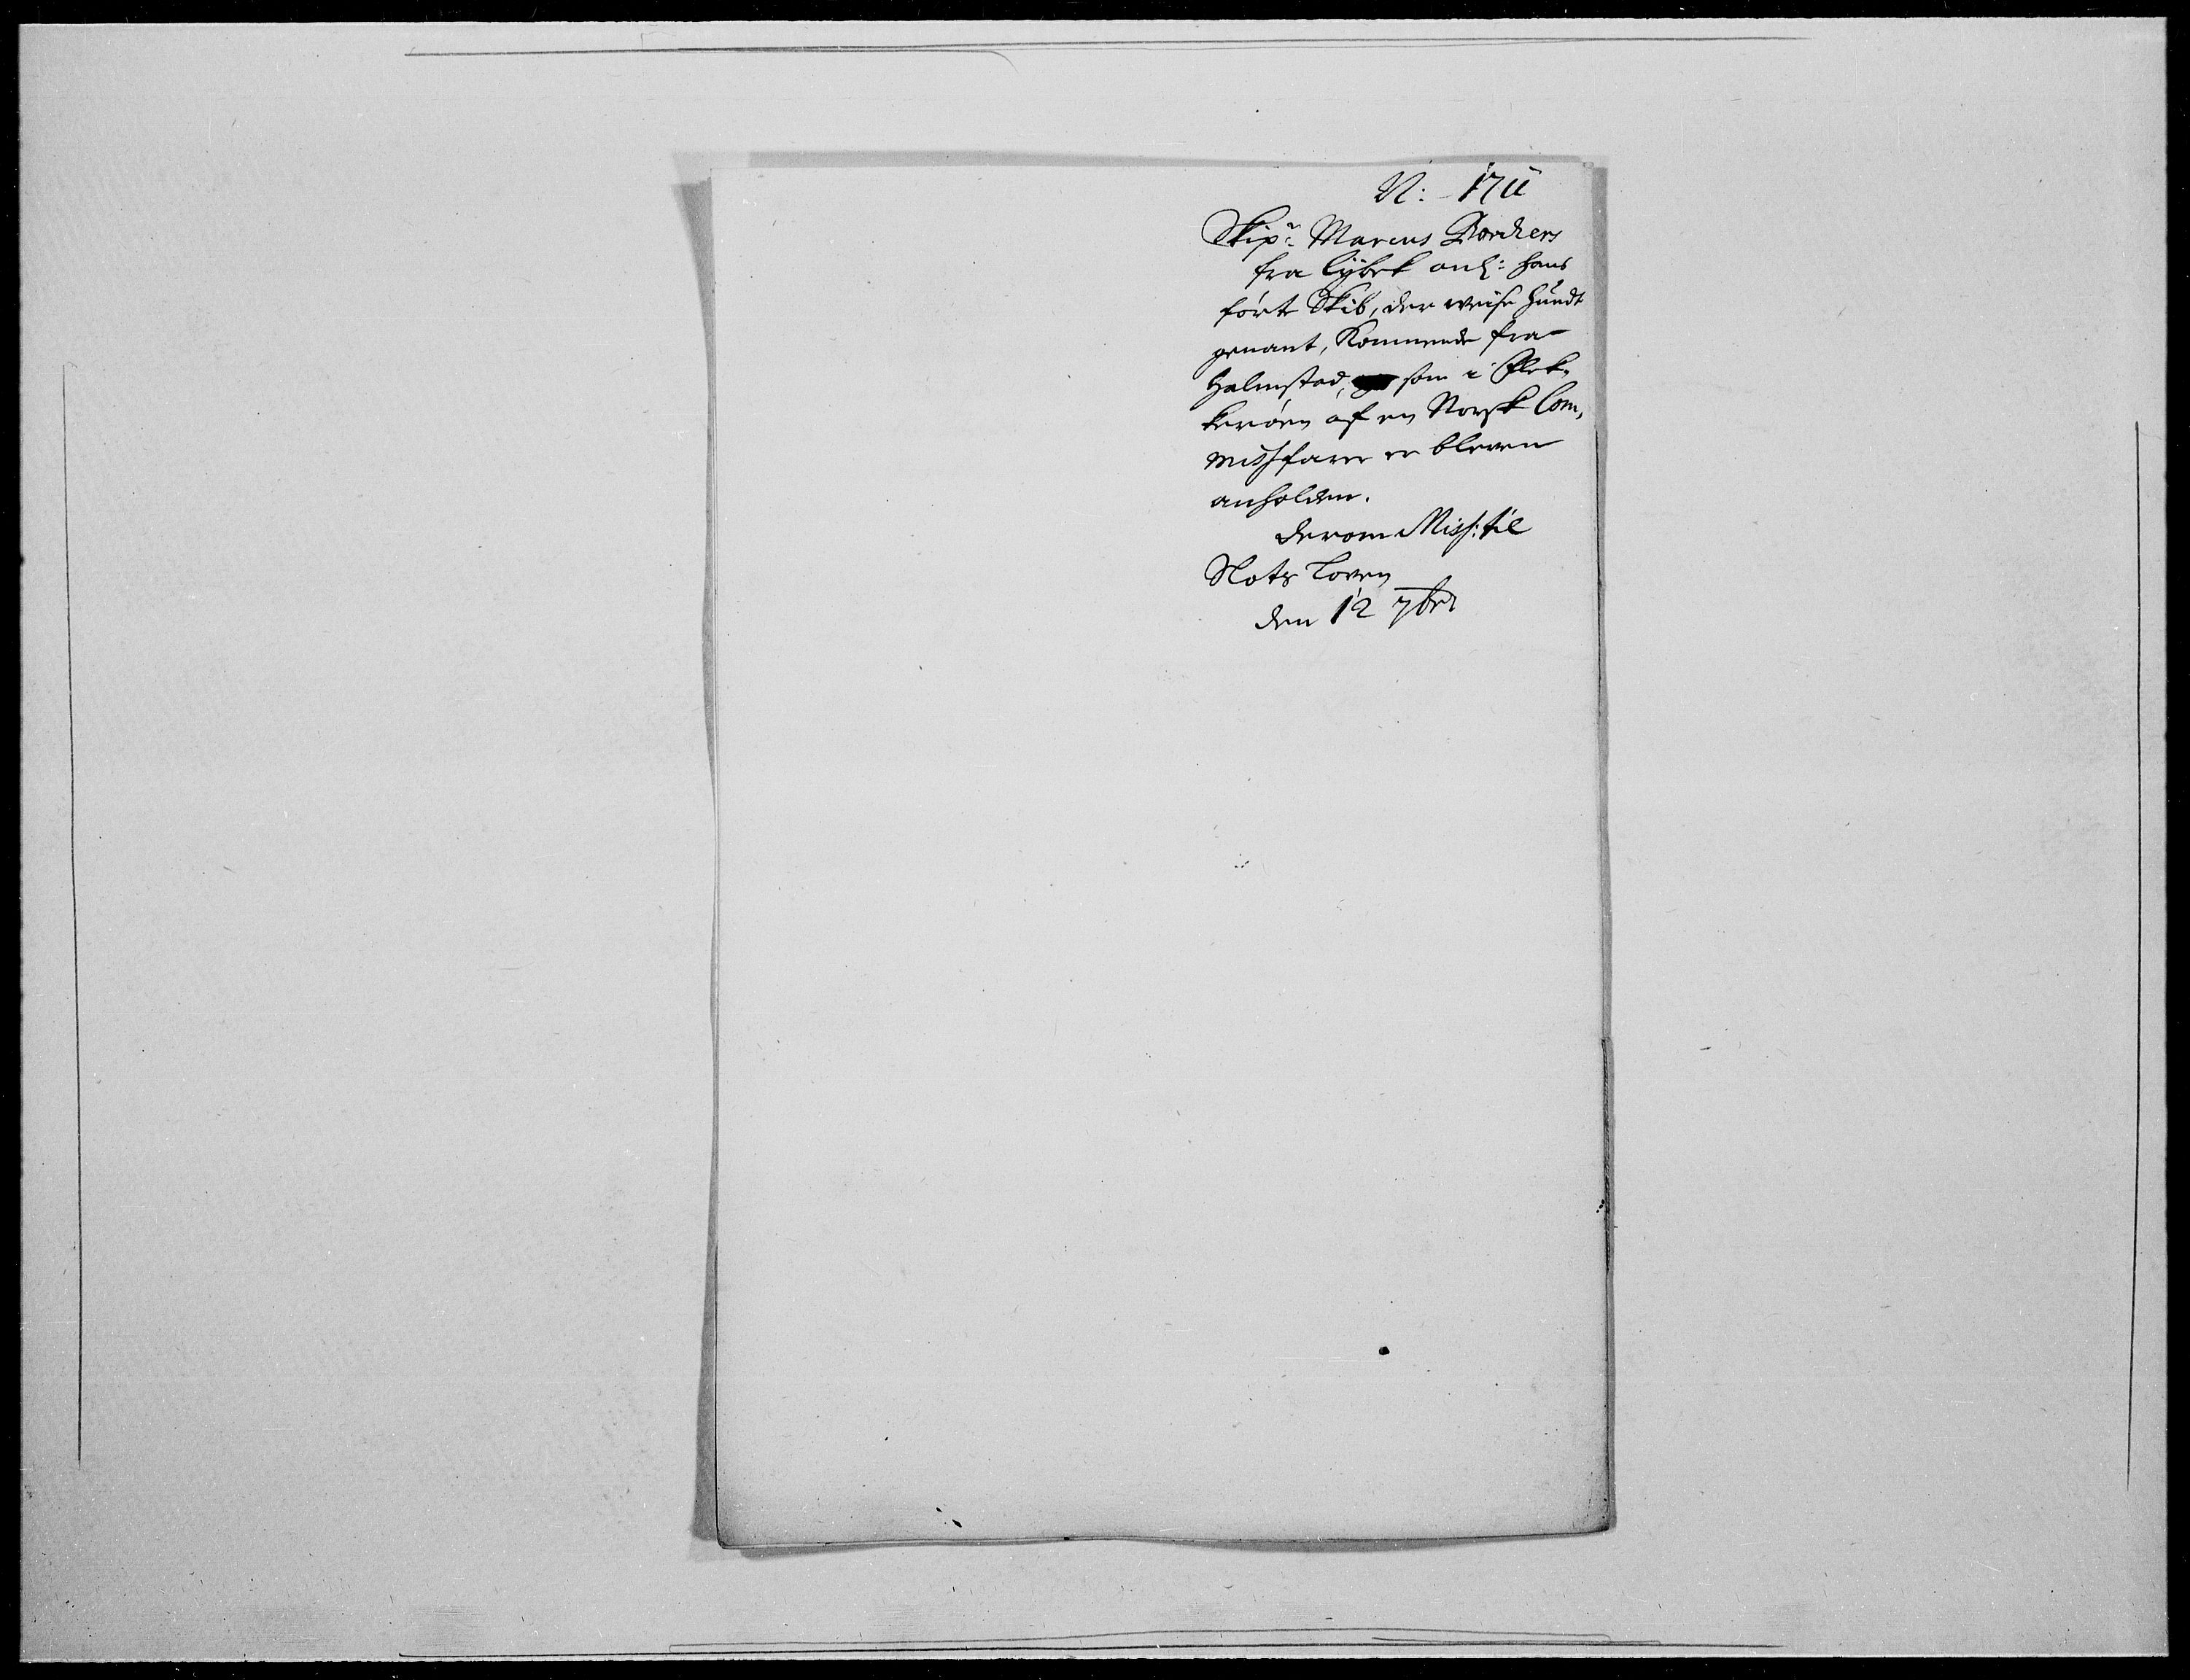 N: 170
Skip.r Marcus Borchers
fra Lybek anl: hans
förte Skib, der weisse Hundt
genant, Kommende fra
Halmstad, som i Flek-
keröen af en Norsk Com-
missfarer er bleven
anholden.
derom Miss: til
Slots Loven
den 12 7br